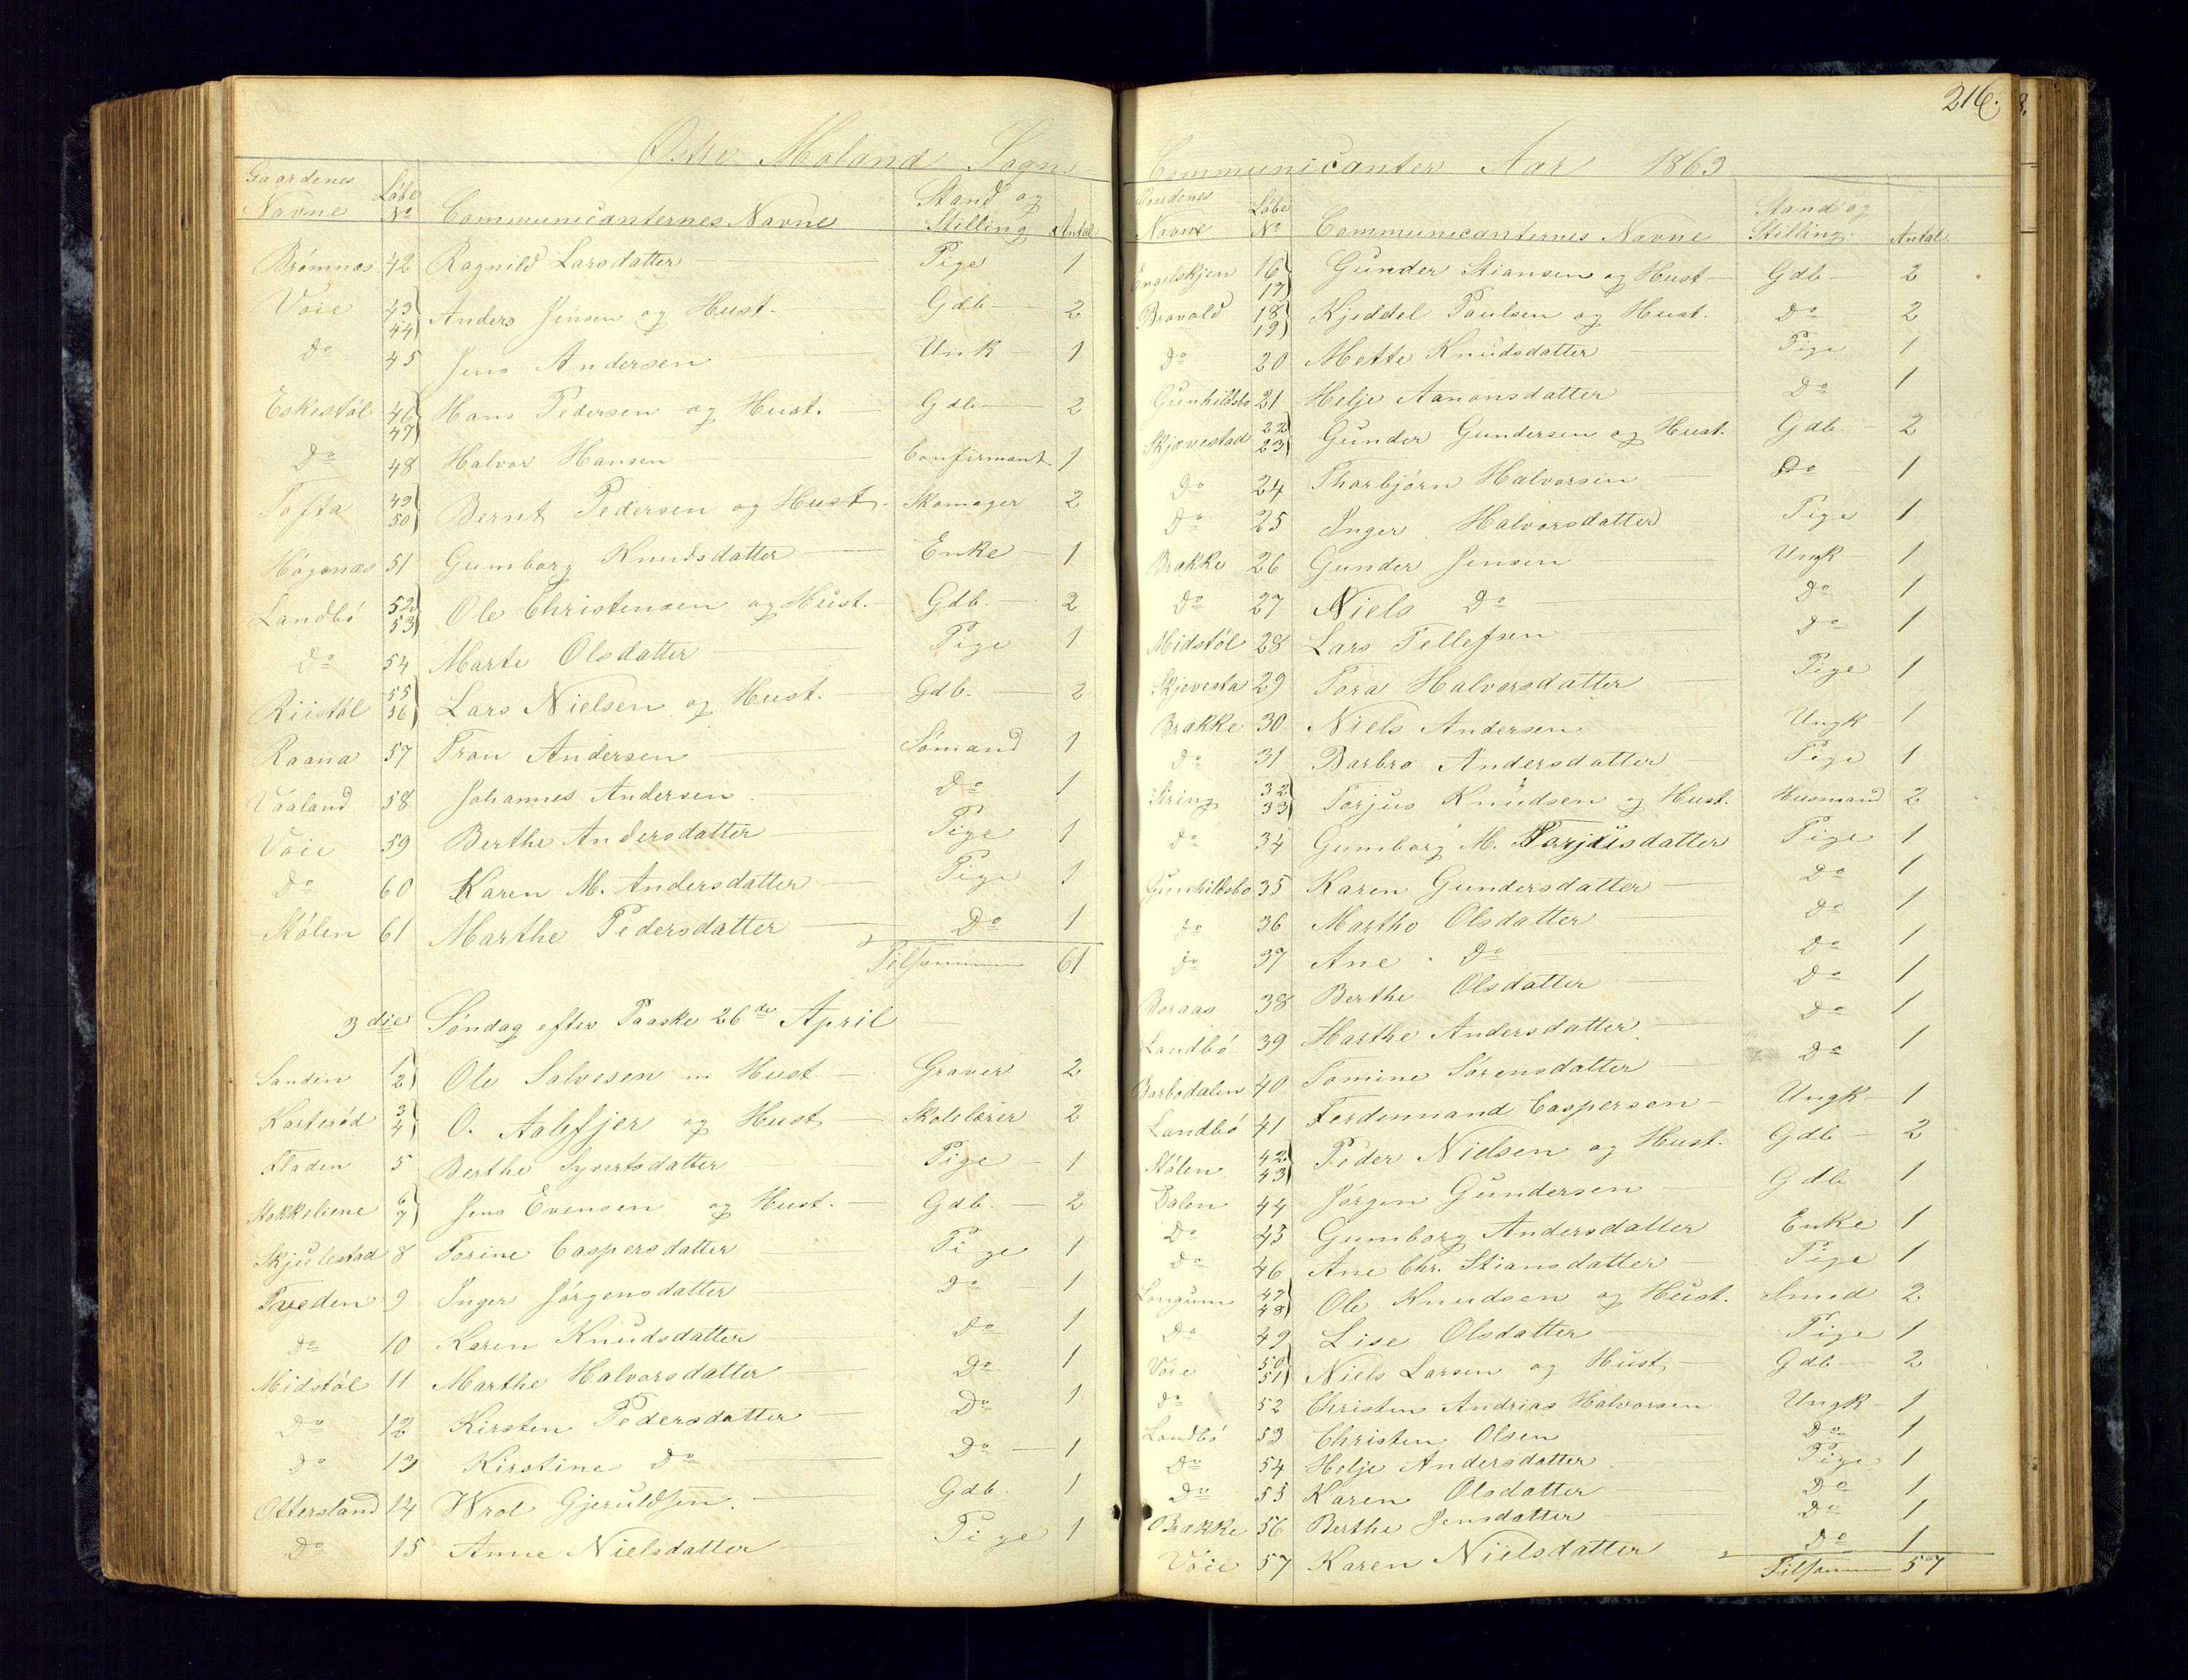 216.
Østre Moland Sogns
Gaardenes Navne Løbe No Communicanternes Navne Stand og Stilling Antal
Brømnæs 42 Ragnild Larsdatter Pige 1
Voie 43 44 Anders Jensen og Hust. Gdb. 2
Do 45 Jens Andersen Unk 1
Eskestøl 46 47 Hans Pedersen og Hust. Gdb 2
Do 48 Halvor Hansen Confirmant 1
Tofta 49 50 Bernt Pedersen og Hust. Skomager 2
Høgenæs 51 Gumborg Knudsdatter Enke 1
Landbø 52 53 Ole Christensen og Hust. Gdb. 2
Do 54 Marte Olsdatter Pige 1
Riistøl 55 56 Lars Nielsen og Hust. Gdb. 2
Raana 57 Tron Andersen Sømand 1
Vaaland 58 Johannes Andersen Do 1
Voie 59 Berthe Andersdatter Pige 1
Do 60 Karen M. Andersdatter Pige 1
Stølen 61 Marthe Pedersdatter Do 1
Tilsammen 61
3die Søndag efter Paaske 26de April
Sanden 1 2 Ole Salvesen m Hust. Graver 2
Kasterød 3 4 O. Aalefjer og Hust Skolelærer 2
Fladen 5 Berthe Syvertsdatter Pige 1
Stokkeliene 6 7 Jens Evensen og Hust. Gdb. 2
Skjulestad 8 Torine Caspersdatter Pige 1
Tveden 9 Inger Jørgensdatter Do 1
Do 10 Karen Knudsdatter Do 1
Midstøl 11 Marthe Halvorsdatter Do 1
Do 12 Kirsten Pedersdatter Do 1
Do 13 Kirstine Do Do 1
Ottersland 14 Wrol Gjeruldsen. Gdb. 1
Do 15 Anne Nielsdatter Pige 1
Communicanter Aar 1863
Navne Løbe No Communicanternes Navne Stand og Stilling. Antal.
Engelskjen 16 17 Gunder Stiansen og Hust Gdb 2
Bråvold 18 19 Kjeddel Paulsen og Hust. Do 2
Do 20 Mette Knudsdatter Pige 1
Gunhildsbo 21 Helje Aanonsdatter Do 1
Skjævestad 22 23 Gunder Gundersen og Hust. Gdb. 2
Do 24 Thorbjørn Halvorsen Do 1
Do 25 Inger Halvorsdatter Pige 1
Brække 26 Gunder Jensen Ungk 1
Do 27 Niels Do Do 1
Midstøl 28 Lars Tellefsen Do 1
Skjevesta 29 Tora Halvorsdatter Pige 1
Brække 30 Niels Andersen Ungk 1
Do 31 Barbro Andersdatter Pige 1
Siring 32 33 Torjus Knudsen og Hust. Husmand 2
Do 34 Gumborg M. Torjusdatter Pige 1
Gunhildsbo 35 Karen Gundersdatter Do 1
Do 36 Marthe Olsdatter Do 1
Do 37 Ane Do Do 1
Boraas 38 Berthe Olsdatter Do 1
Landbø 39 Marthe Andersdatter Do 1
Barbodalen 40 Tomine Sørensdatter Do 1
Landbø 41 Ferdennand Caspersen Ungk 1
Stølen 42 43 Peder Nielsen og Hust. Gdb 2
Dalen 44 Jørgen Gundersen Gdb 1
Do 45 Gumborg Andersdatter Enke 1
Do 46 Ane Chr. Stiansdatter Pige 1
Longum 47 48 Ole Knudsen og Hust. Smed 2
Do 49 Lise Olsdatter Pige 1
Voie 50 51 Niels Larsen og Hust Gdb 2
Do 52 Christen Andrias Halvorsen Ungk 1
Landbø 53 Christen Olsen Do 1
Do 54 Helje Andersdatter Pige 1
Do 55 Karen Olsdatter Do 1
Brække 56 Berthe Jensdatter Do 1
Voie 57 Karen Nielsdatter Do 1
Tilsammen 57